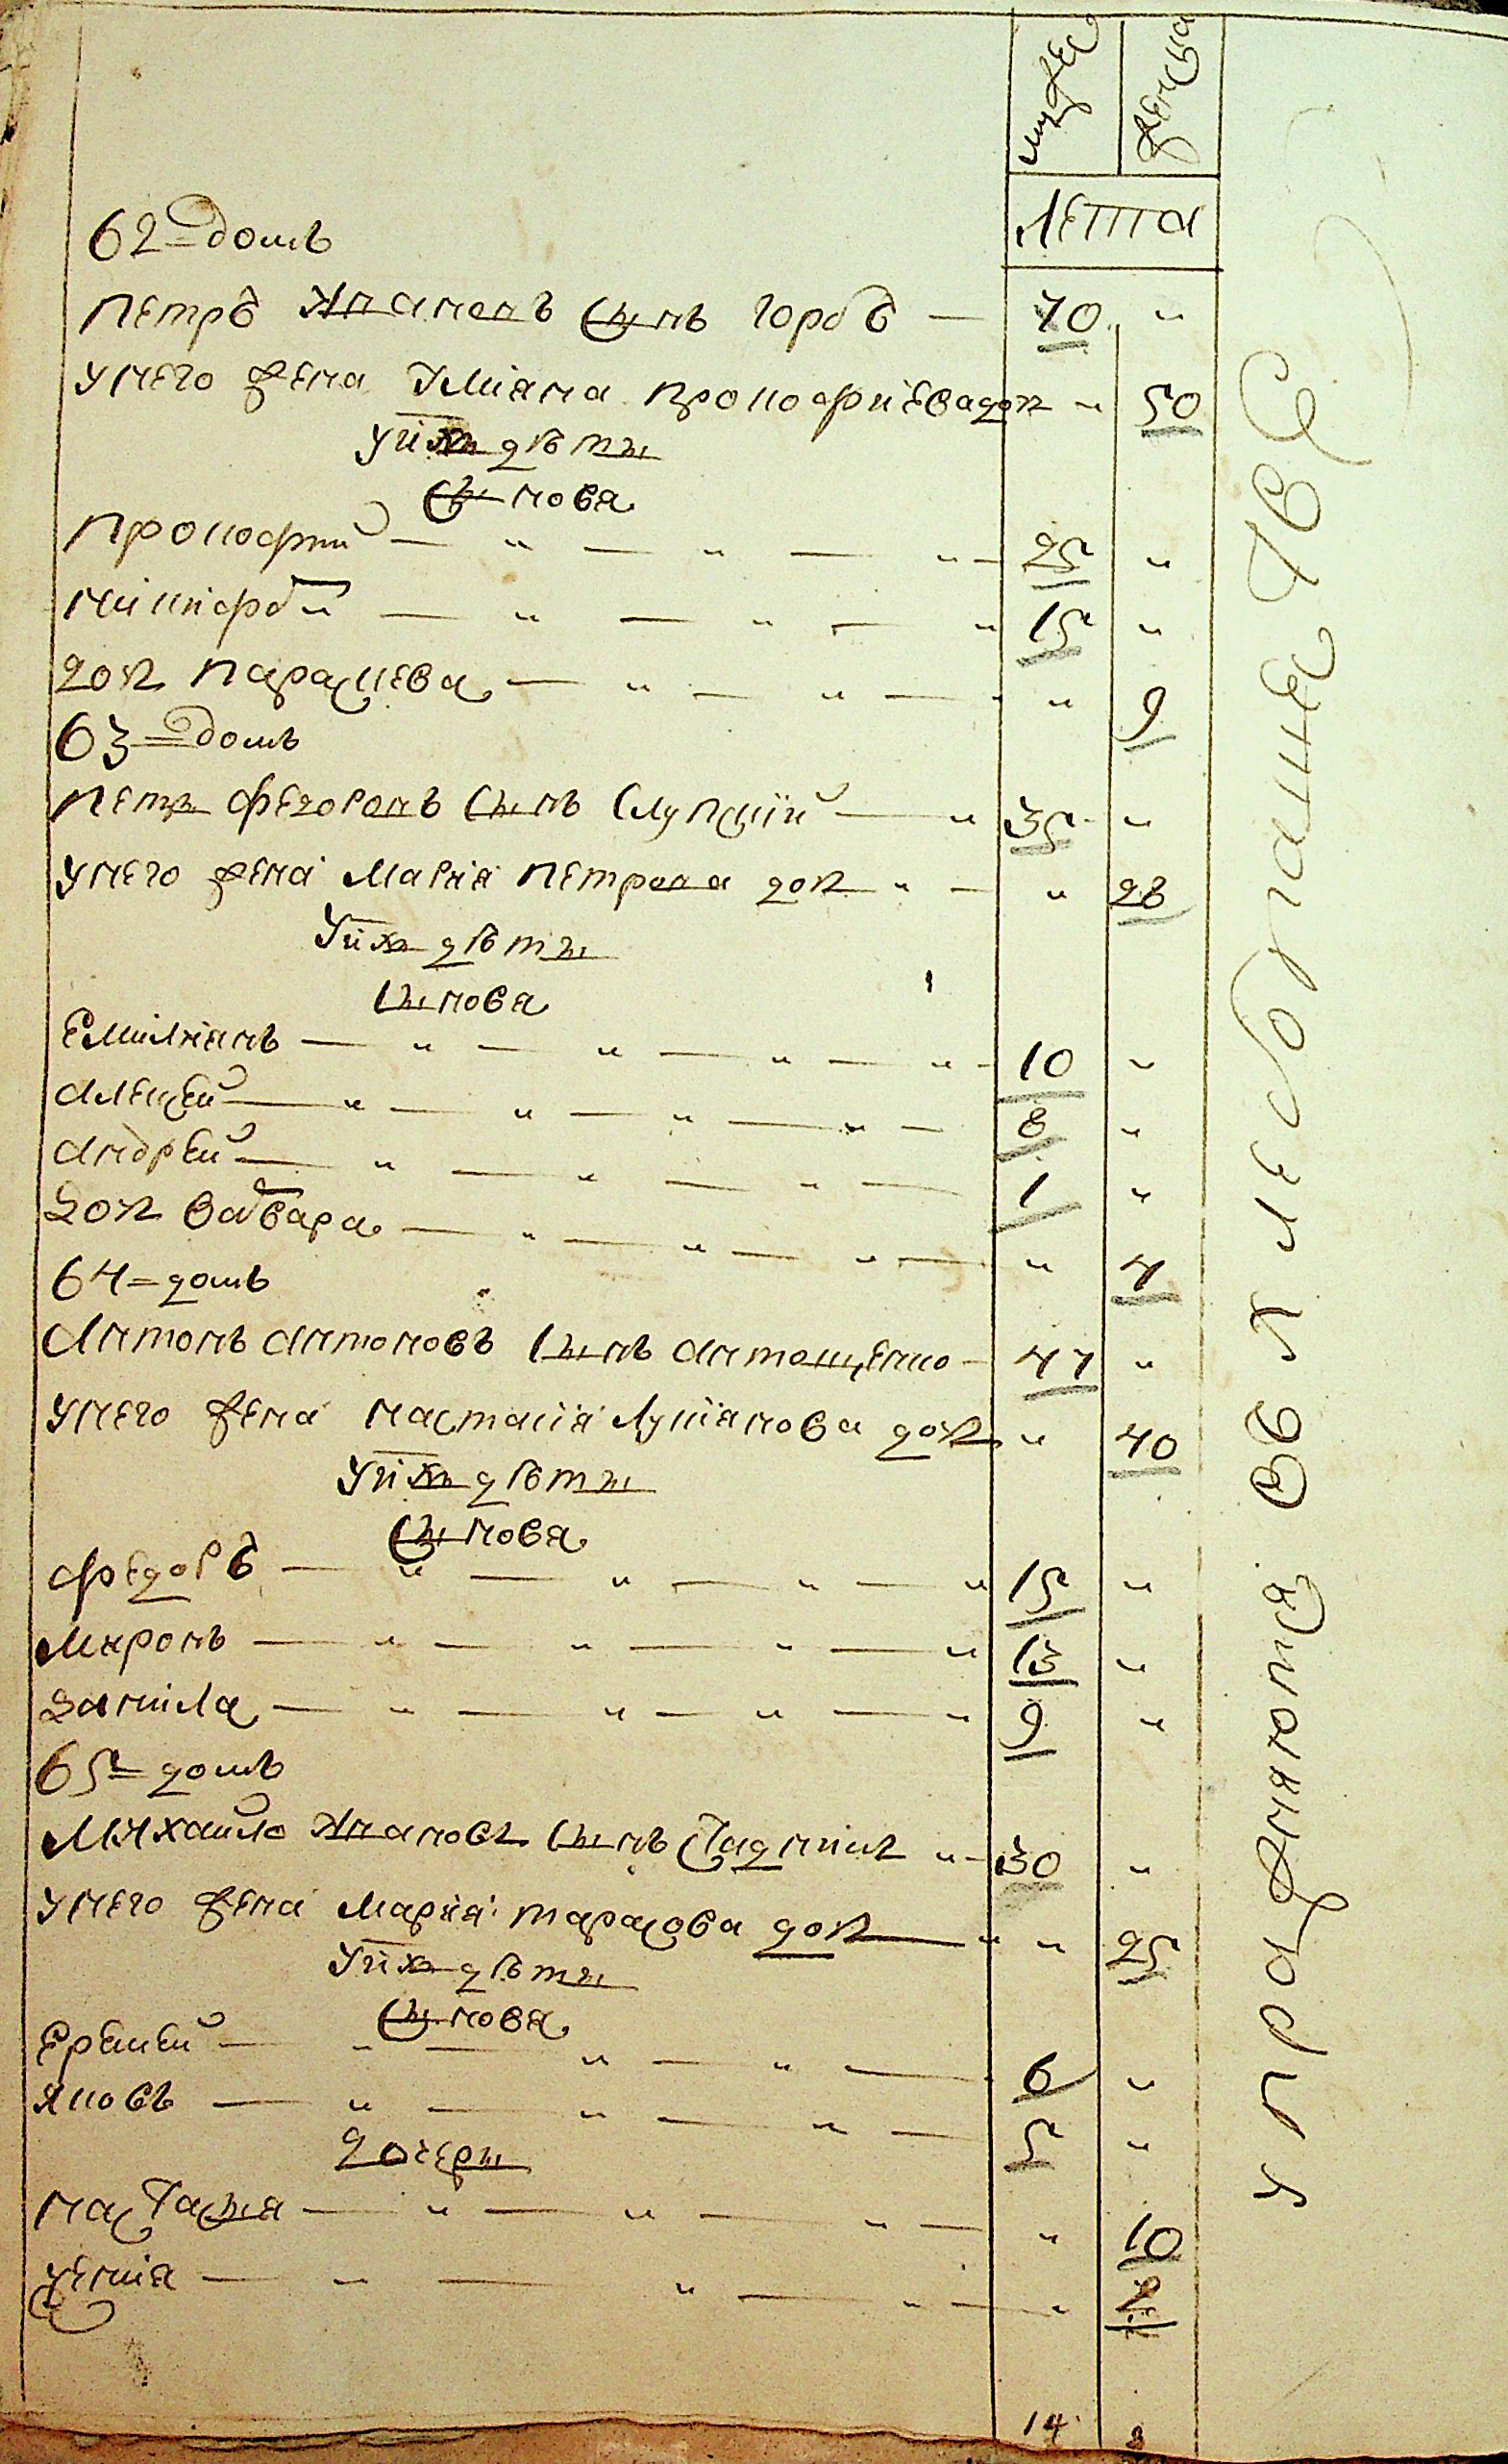 мужес женска
лета
62=домъ
Петръ Ивановъ Сынъ Горбъ — 70 "
У него жена Улияна Прокофиева доч " 50
У них дѣты
Сынова
Прокофий — " — " — " 25 "
Никифоръ — " — " — " 15 "
доч Парасцева — " — " — " 9
63=домъ
Петръ Федоровъ Сынъ Слупскій — " 35 "
У него жена Мария Петрова доч " — " 28
У них дѣты
Сынова
Емилиянъ — " — " — " — " 10 "
Алексей — " — " — " — " — 8 "
Андрей — " — " — " — 1 "
доч Варвара — " — " — " — " 4
64=домъ
Антонъ Антоновъ Сынъ Антощенко — 47 "
У него жена Настасія Лукіянова доч " 40
У них дѣты
Сынова
Федоръ — " — " — " — " 15 "
Миронъ — " — " — " — " 13 "
Данила — " — " — " — " 9 "
65=домъ
Михайло Ивановъ Сынъ "— 30 "
У него жена Мария Тарасова доч — " " 25
У них дѣты
Сынова
Еремей — " — " — " — 6 "
Яковъ — " — " — " — 5 "
дочеры
Настасыя — " — " — " — " 10
Ксения — " — " — " — " 2
14 8
упражняются въ хлебопашестве